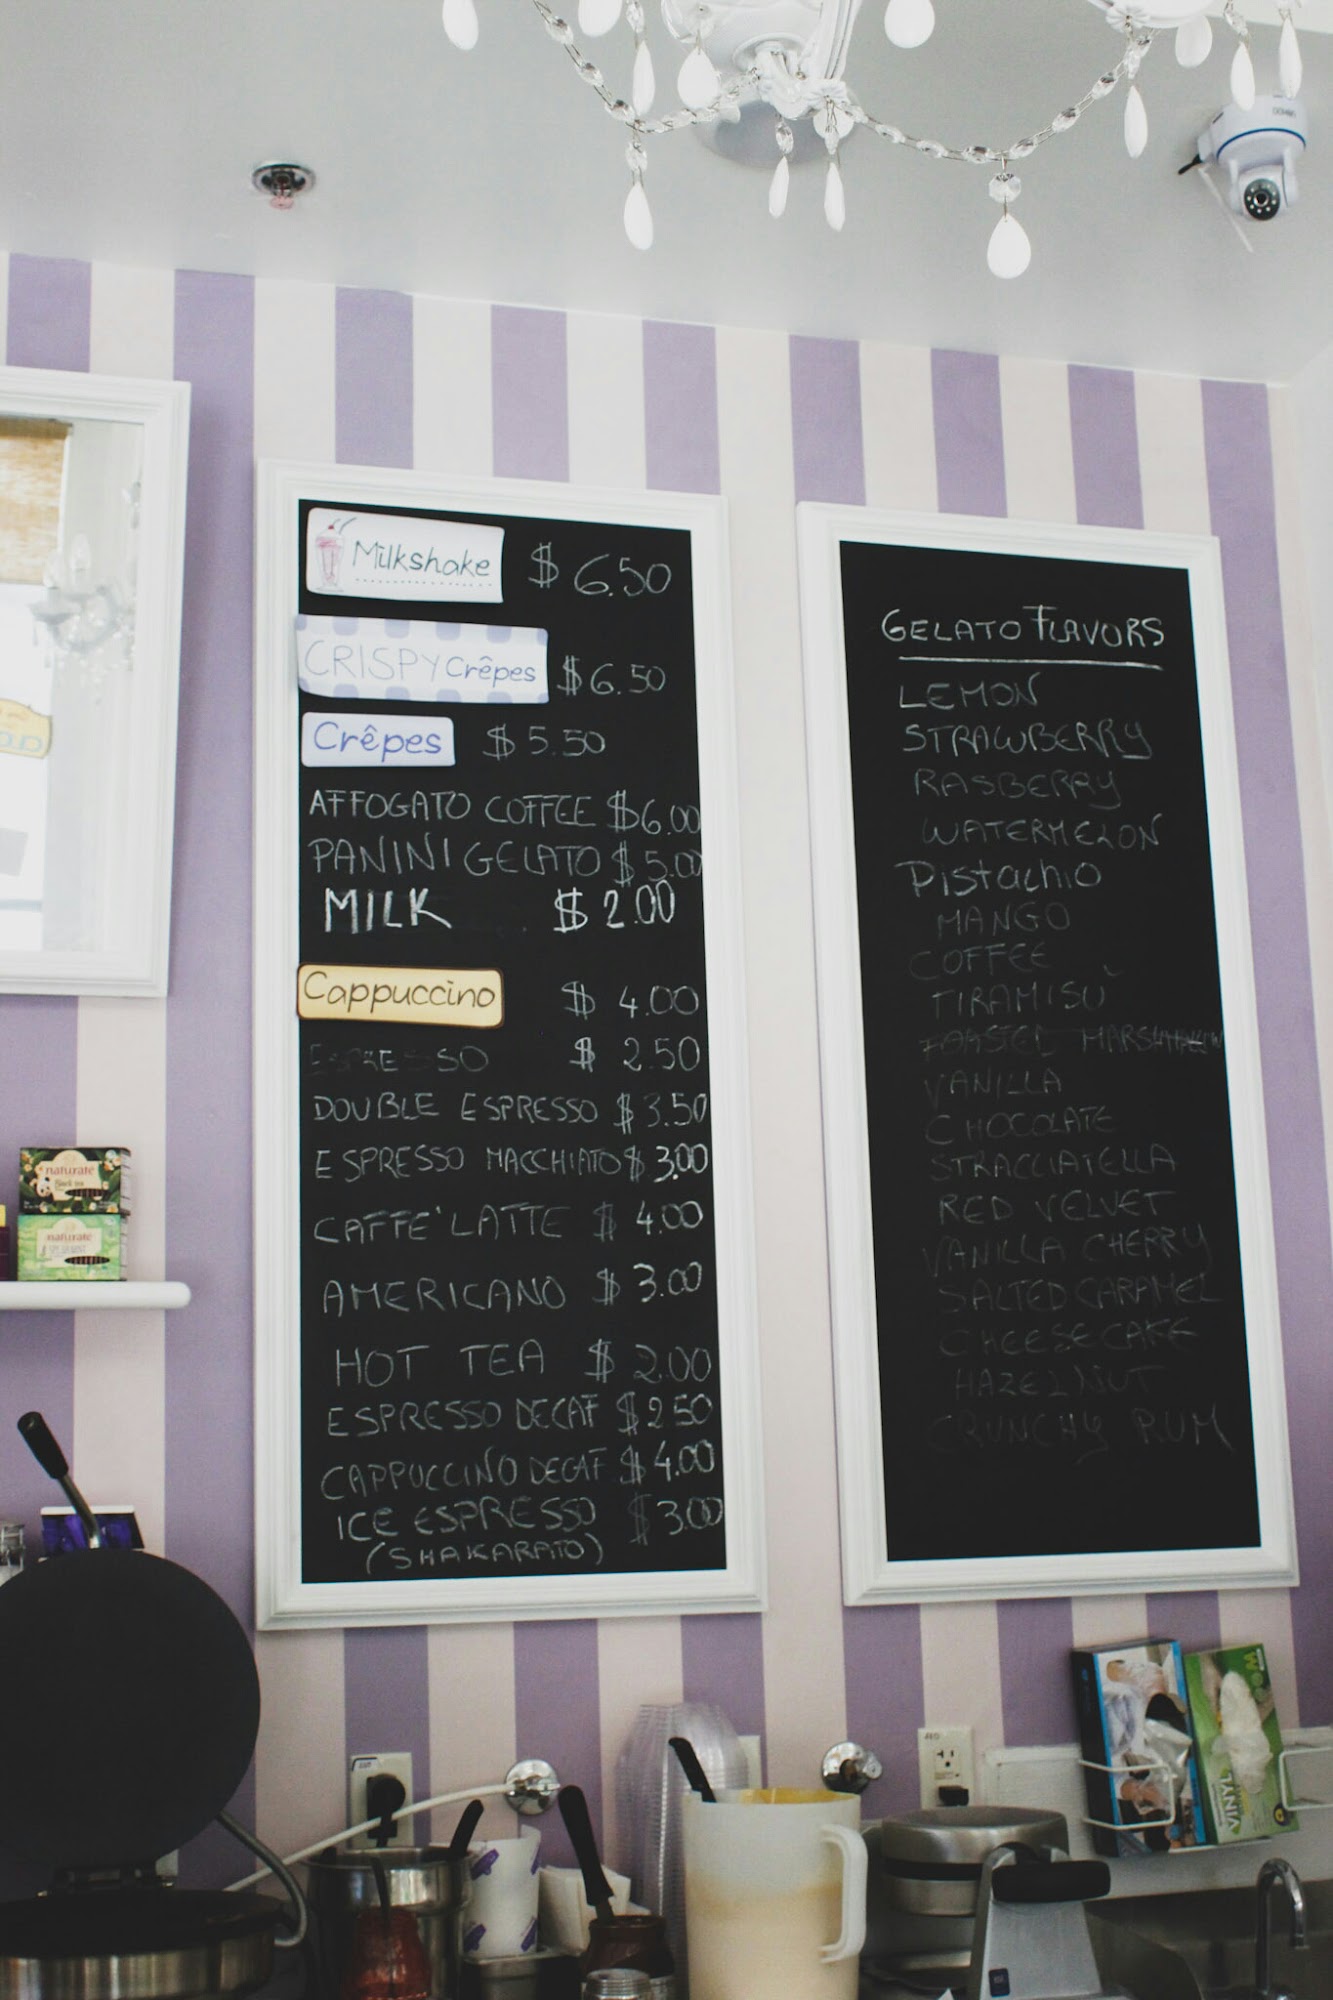 Milkshake $ 6.50
CRISPY Crêpes $ 6.50
Crêpes $ 5.50
AFFOGATO COFFEE $ 6.00
PANINI GELATO $ 5.00
MILK $ 2.00
Cappuccino $ 4.00
ESPRESSO $ 2.50
DOUBLE ESPRESSO $ 3.50
ESPRESSO MACCHIATO $ 3.00
CAFFE' LATTE $ 4.00
AMERICANO $ 3.00
HOT TEA $ 2.00
ESPRESSO DECAF $ 2.50
CAPPUCCINO DECAF $ 4.00
ICE ESPRESSO $ 3.00
(SHAKARATO)
GELATO FLAVORS
LEMON
STRAWBERRY
RASBERRY
WATERMELON
PistacHio
MANGO
COFFEE
TIRAMISÙ
TOASTED MARSHMALLOW
VANILLA
CHOCOLATE
STRACCIATELLA
RED VELVET
VANILLA CHERRY
SALTED CARAMEL
CHEESECAKE
HAZELNUT
CRUNCHY RUM
naturate
Black tea
naturate
VINYL